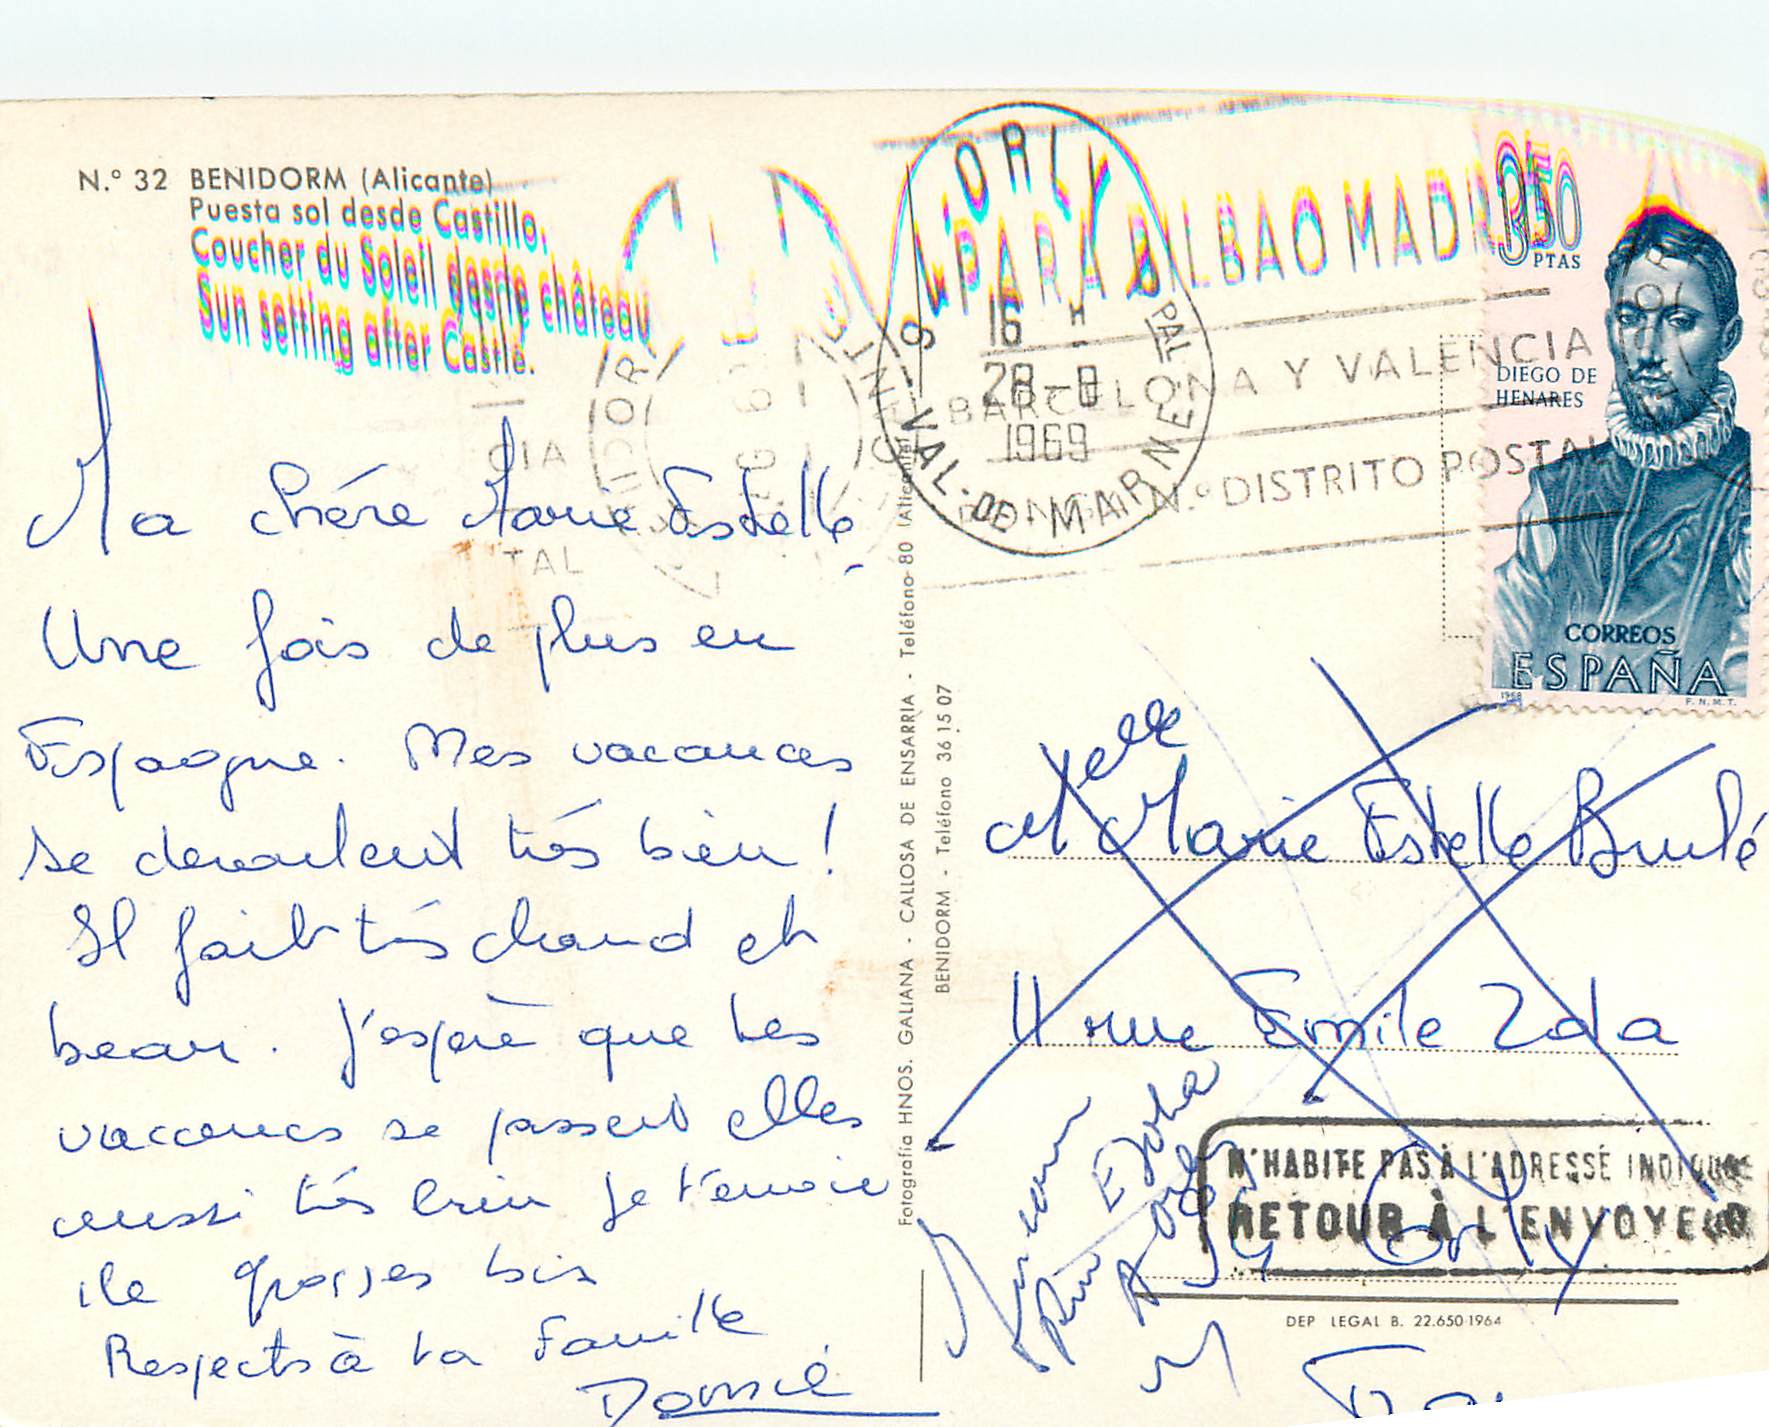 N.º 32 BENIDORM (Alicante)
Puesta sol desde Castillo.
Coucher du Soleil desde château
Sun setting after Castle.
Ma chére Marie Estelle
Une fois de plus en
Espagne. Mes vacances
se deroulent très bien !
Il fait très chaud et
beau. J'espère que tes
vacances se passent elles
aussi très bien je t'envoie
de grosses bis
Respects à ta famille
Fotografía HNOS. GALIANA - CALLOSA DE ENSARRIA - Teléfono 80 (Alicante)
BENIDORM - Teléfono 36 15 07
ORLY
PAL
16 H
28-8
1969
VAL-DE-MARNE
PARA BILBAO MADRID
BARCELONA Y VALENCIA
N.º DISTRITO POSTAL
CIA
TAL
3'50
PTAS
DIEGO DE
HENARES
CORREOS
ESPAÑA
1968
F.N.M.T.
Melle Marie Estelle Brulé
11 rue Emile Zola
94 Orly
N'HABITE PAS A L'ADRESSE INDIQUÉE
RETOUR À L'ENVOYEUR
DEP LEGAL B. 22.650-1964